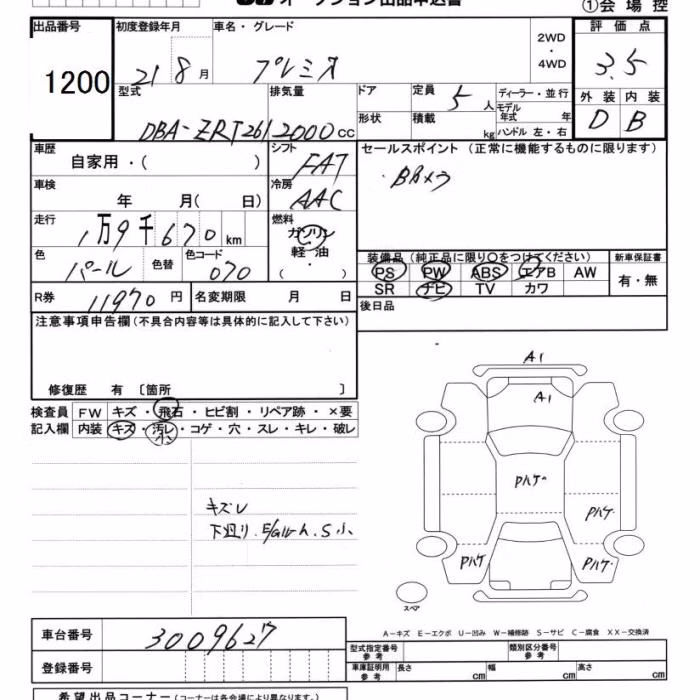 オークション出品申込書
①会場控
出品番号
1200
初度登録年月
21 8月
車名・グレード
プレミオ
2WD
・
4WD
評価点
3.5
外装 内装
D B
型式
DBA-ZRT261
排気量
2000cc
ドア
形状
定員 5人
積載 kg
ディーラー・並行
モデル年式 年
ハンドル 左・右
車歴
自家用・( )
シフト
FAT
セールスポイント (正常に機能するものに限ります)
・BBメラ
車検
年 月( 日)
冷房
AAC
走行
1万9千670km
燃料
ガソリン
軽油
( ・ )
色
パール
色替
色コード
070
装備品 (純正品に限り○をつけてください)
PS PW ABS エアB AW
SR ナビ TV カワ
新車保証書
有・無
R券 11970円
名変期限 月 日
後日品
注意事項申告欄 (不具合内容等は具体的に記入して下さい)
修復歴 有 〔箇所 〕
検査員
記入欄
FW キズ・飛石・ヒビ割・リペア跡・×要
内装 キズ・汚レ・コゲ・穴・スレ・キレ・破レ
小
キズU
下廻り.E/Gルーム.S小
A1
A1
Pハゲ
Pハゲ
Pハゲ
Pハゲ
スペア
A-キズ E-エクボ U-凹み W-補修跡 S-サビ C-腐食 XX-交換済
車台番号
3009627
登録番号
型式指定番号
参考
類別区分番号
参考
車庫証明用
参考
長さ cm
幅 cm
高さ cm
希望出品コーナー (コーナーは各会場により異なります。)